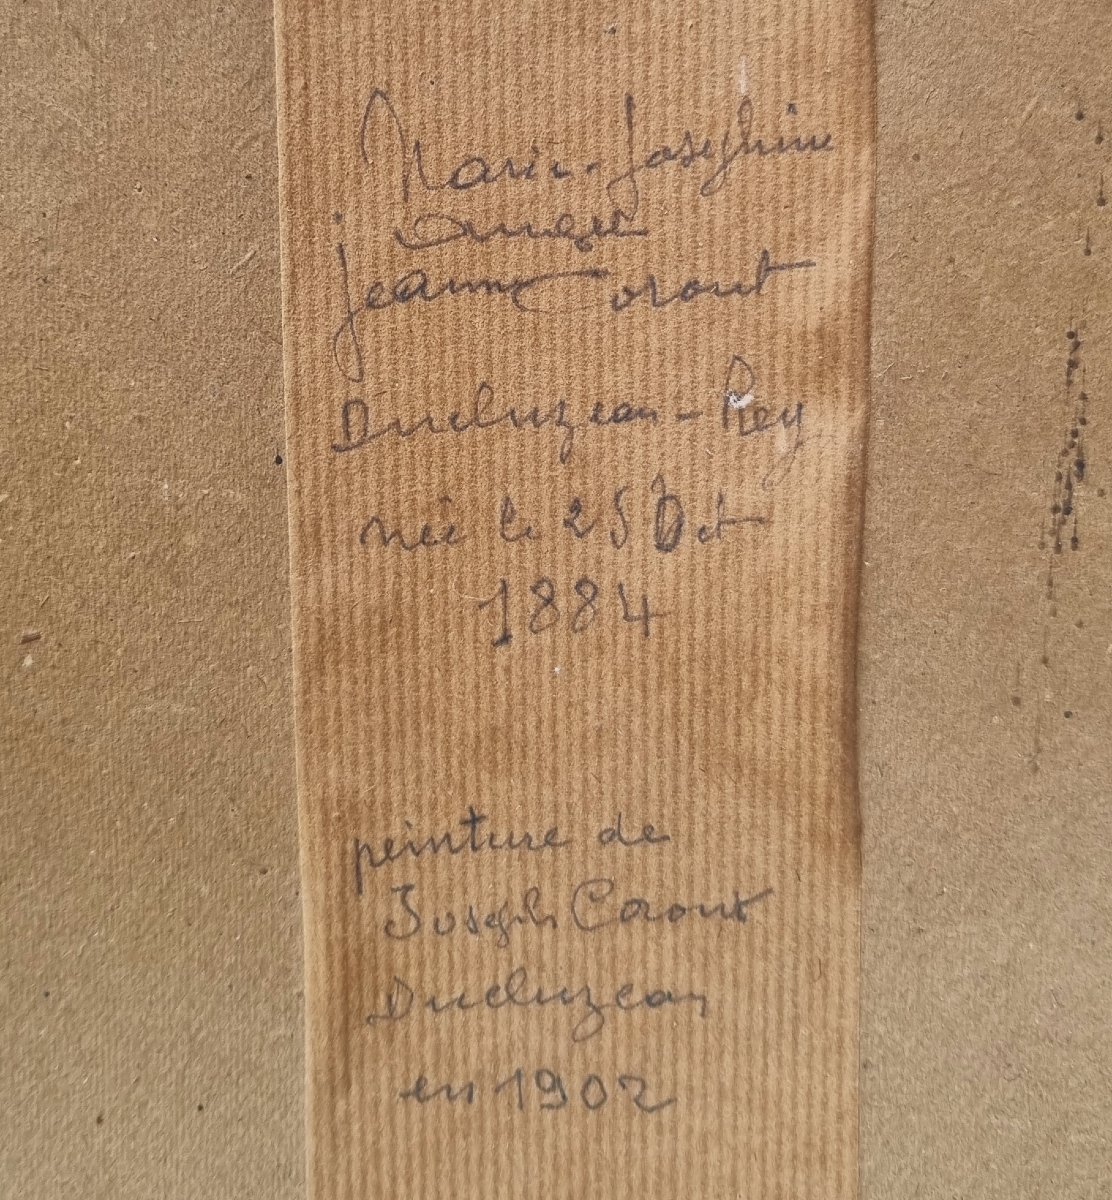 Marie-Joséphine
Jeanne Coront
Ducluzeau-Rey
née le 25 Oct
1884
peinture de
Joseph Coront
Ducluzeau
en 1902